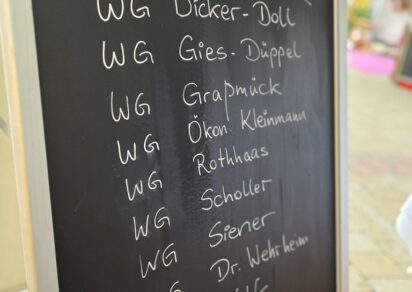 WG Dicker-Doll
WG Gies-Düppel
WG Graßmück
WG Ökon. Kleinmann
WG Rothhaas
WG Scholler
WG Siener
WG Dr. Wehrheim
WG